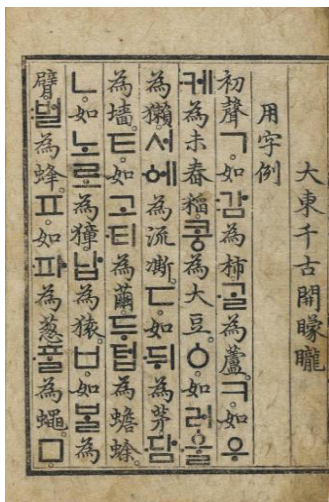 大東千古開矇矓
用字例
初聲ㄱ。如감為柿。ᄀᆞᆯ為蘆。ㅋ。如우
케為未舂稻。콩為大豆。ㆁ。如러ᅌᅮᆯ
為獺。서ᅌᅦ為流凘。ㄷ。如뒤為茅。담
為墻。ㅌ。如고티為繭。두텁為蟾蜍。
ㄴ。如노로為獐。납為猿。ㅂ。如ᄇᆞᆯ為
臂。벌為蜂。ㅍ。如파為葱。ᄑᆞᆯ為蠅。ㅁ